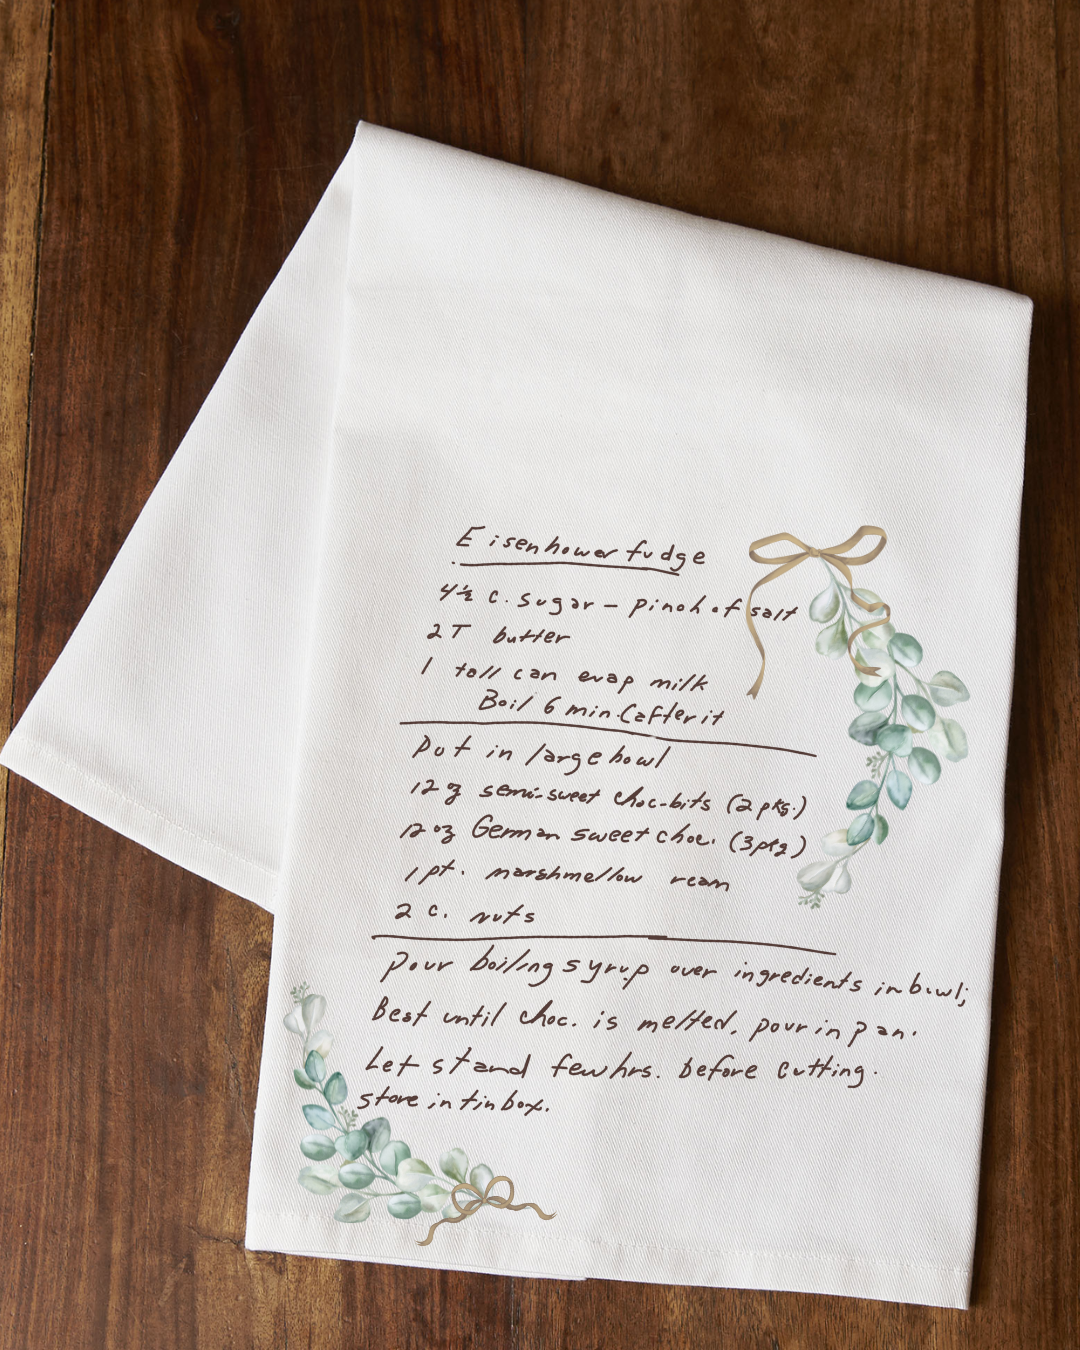 Eisenhower fudge
4½ c. sugar – pinch of salt
2 T butter
1 tall can evap milk
Boil 6 min. (after it
Put in large bowl
12 oz semi-sweet choc-bits (2 pkg.)
12 oz German sweet choc. (3 pkg)
1 pt. marshmellow ream
2 c. nuts
Pour boiling syrup over ingredients in bowl;
Beat until choc. is melted, pour in pan.
Let stand few hrs. before cutting.
store in tin box.